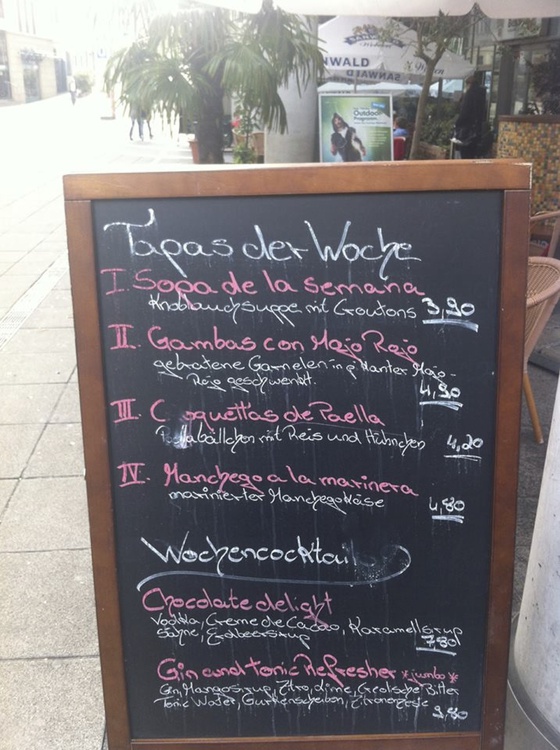 NWALD
SANWALD
Outdoor
Programm
Tapas der Woche
I. Sopa de la semana
Knoblauchsuppe mit Croutons 3,90
II. Gambas con Mojo Rojo
gebratene Garnelen in pikanter Mojo-
Rojo geschwenkt. 4,90
III. C oquettas de Paella
P llabällchen mit Reis und Hühnchen 4,20
IV. Manchego a la marinera
marinierter Manchegokäse 4,80
Wochencocktail
Chocolate delight
Vodka, Creme de Cacao, Karamellsirup
Sahne, Erdbeersirup 7,80
Gin and tonic Refresher *jumbo*
Gin, Mangosirup, Zitro, Lime, Creolsche Bitter
Tonic Water, Gurkenscheiben, Zitronenzeste
9,80